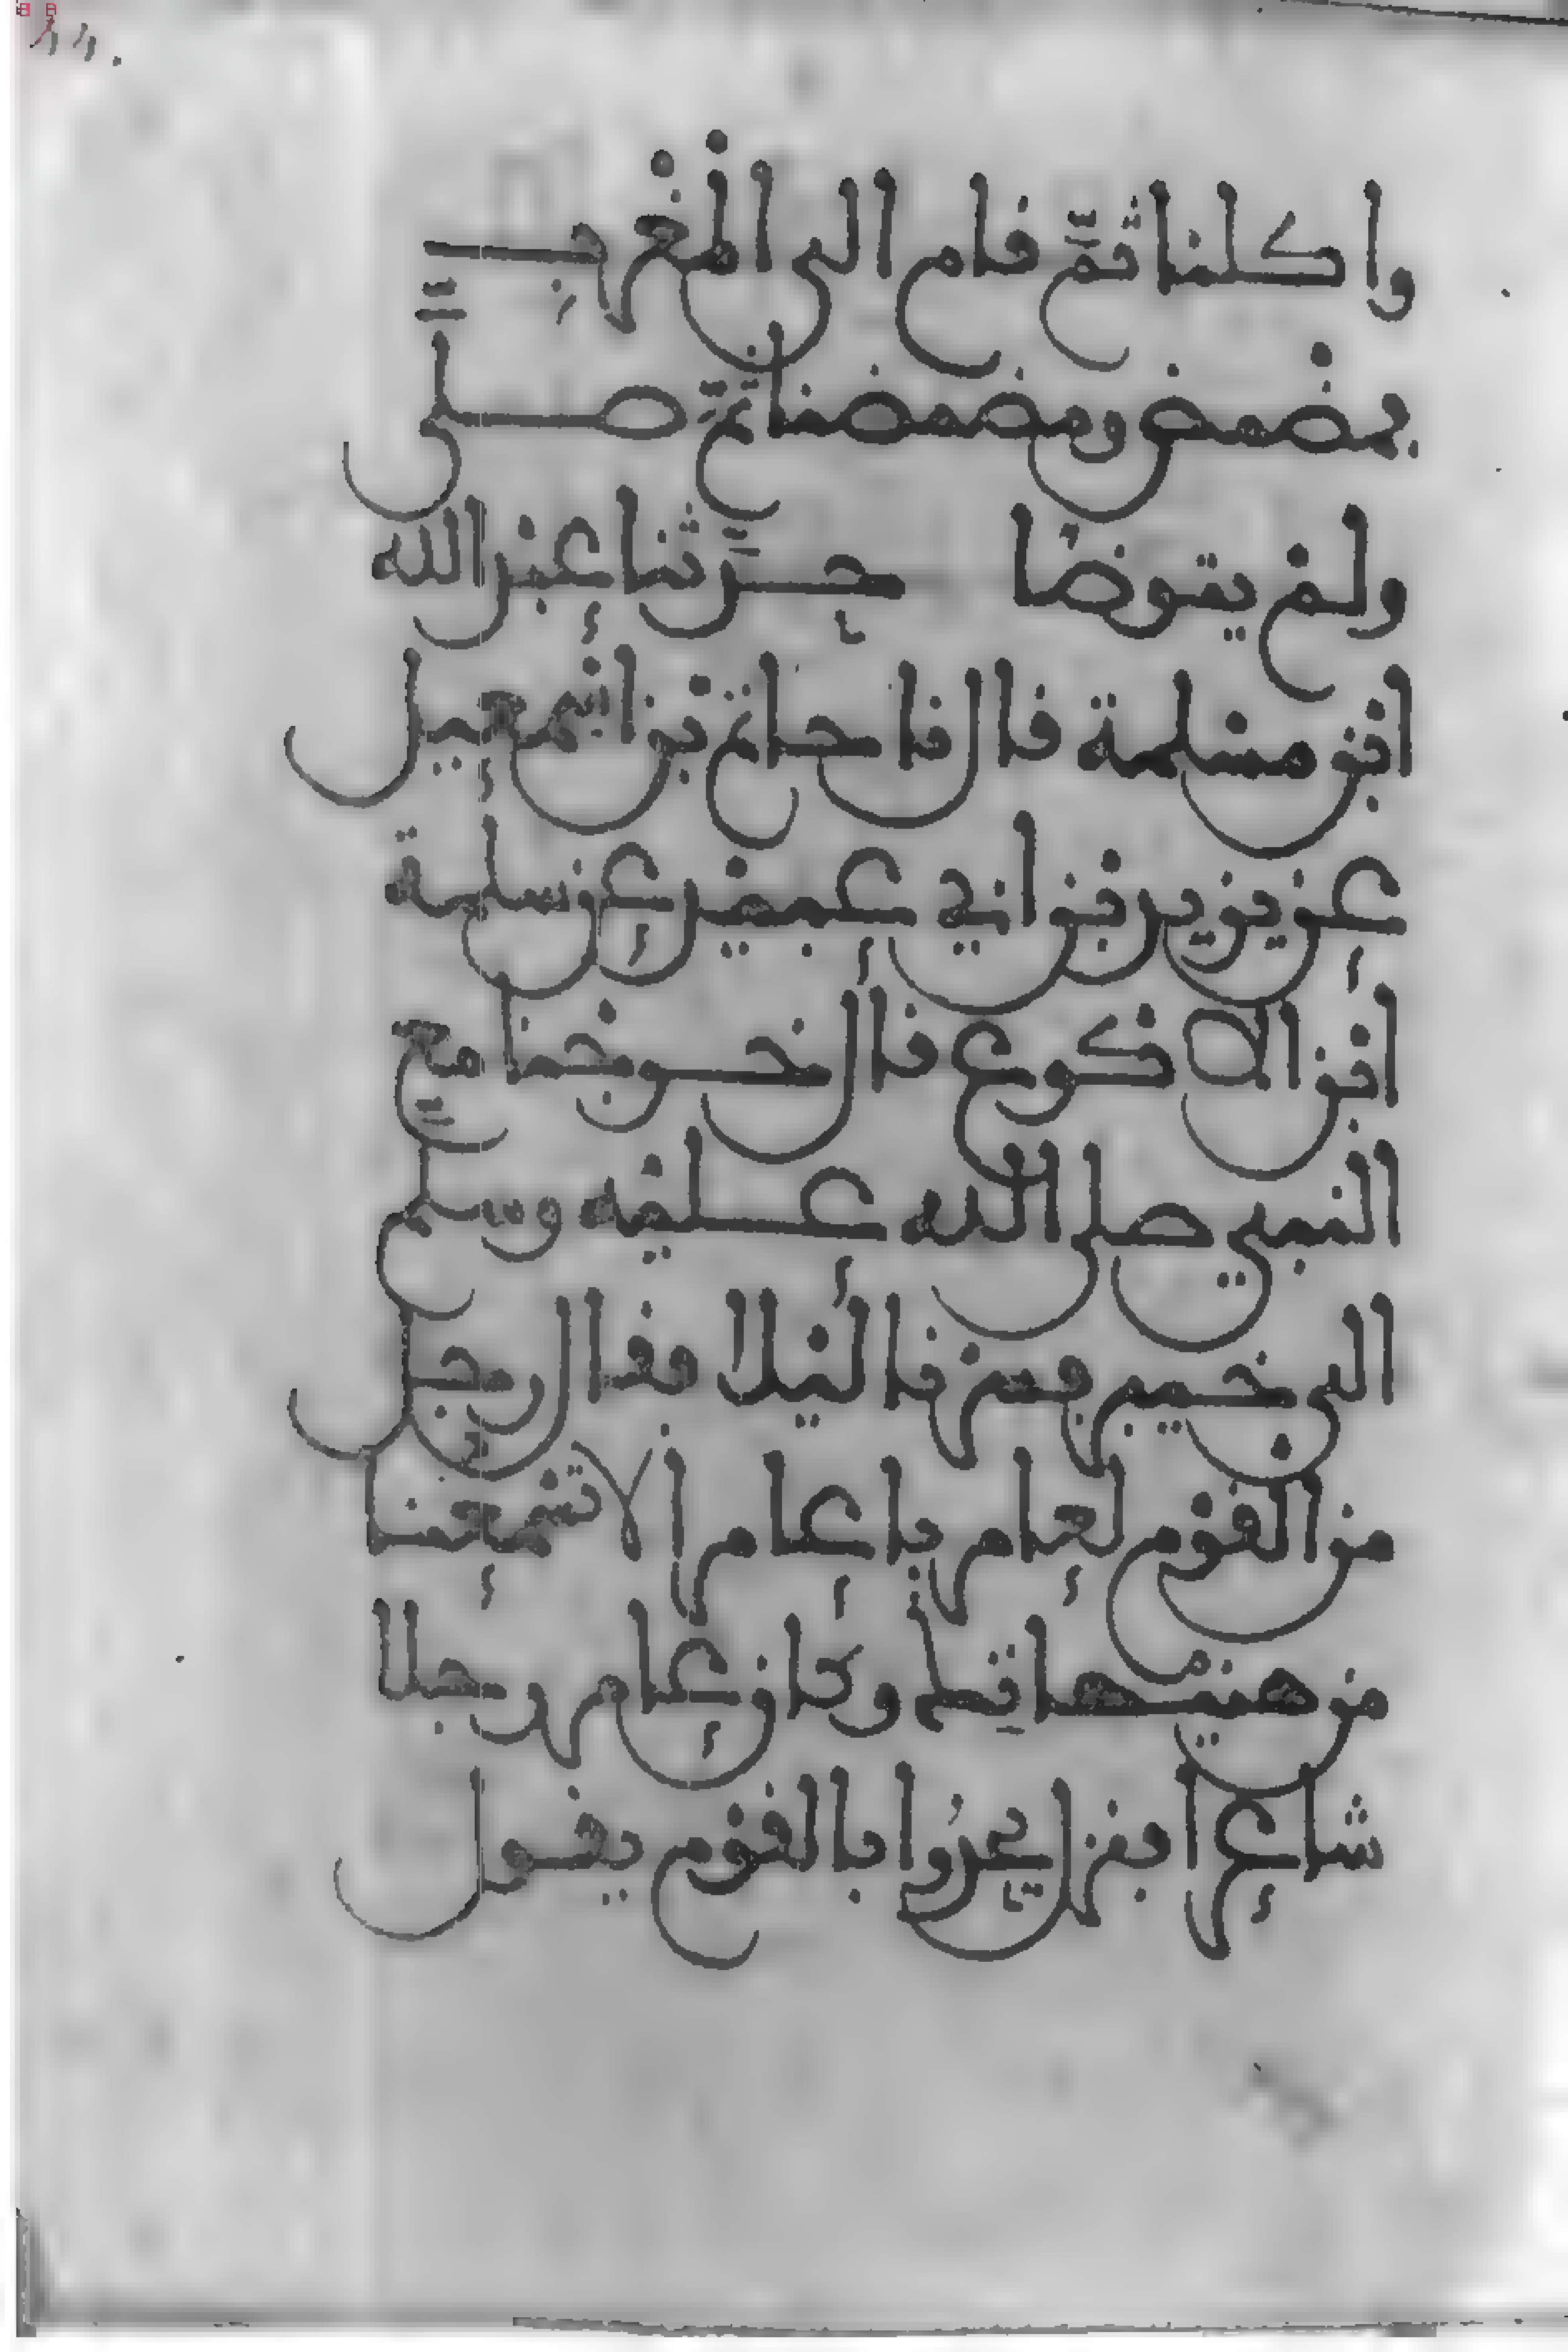 واكلنا ثمَّ قام الى المغربِ
فمضمض ومضمضنا ثمّ صلَّى
ولمْ يتوضأ حدَّثنا عبْد الله
ابْن مسْلمة قال نا حاتم بْن اسْمعيل
عن يزيد بْن ابي عبيْد عن سلمة
ابْن الاكْوع قال خرجْنا مع
النبي صلى الله عليْه وسلَّم
الى خيبر فسرْنا ليْلا فقال رجل
من القوْم لعامر يا عامر الا تسْمعنا
منْ هنيْهاتِك وكان عامر رجلا
شاعرا فنزل يحدُوا بالقوْم يقول